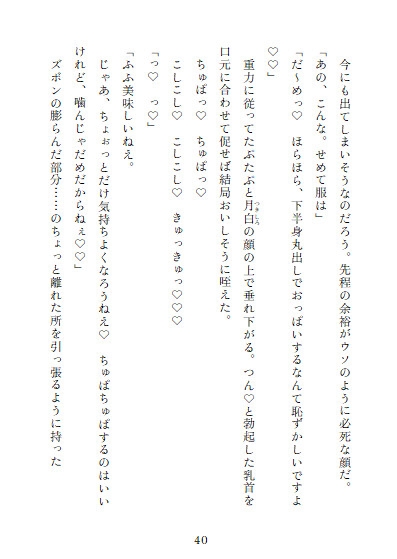 今にも出てしまいそうなのだろう。先程の余裕がウソのように必死な顔だ。
「あの、こんな。せめて服は」
「だ～めっ♡　ほらほら、下半身丸出しでおっぱいするなんて恥ずかしいですよ
♡♡」
重力に従ってたぷたぷと月白の顔の上で垂れ下がる。つん♡と勃起した乳首を
つきしろ
口元に合わせて促せば結局おいしそうに咥えた。
ちゅぱっ♡　ちゅぱっ♡
こしこし♡　こしこし♡　きゅっきゅっ♡♡♡
「っ♡　っ♡」
「ふふ美味しいねぇ。
じゃあ、ちょぉっとだけ気持ちよくなろうねえ♡　ちゅぱちゅぱするのはいい
けれど、噛んじゃだめだからねぇ♡♡」
ズボンの膨らんだ部分……のちょっと離れた所を引っ張るように持った
40